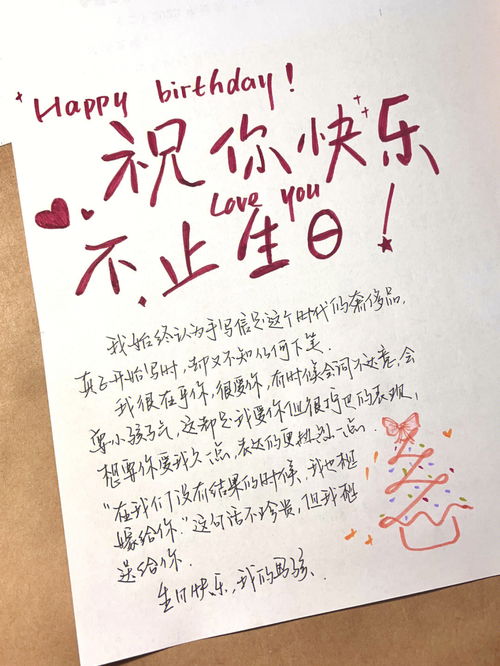 Happy birthday!
祝你快乐
Love you
不止生日!
我始终认为手写信是这个时代的奢侈品,
真正开始写时,却又不知从何下笔.
我很在乎你,很爱你,有时候会词不达意,会
耍小孩子气,这都是我爱你但很拘巴的表现,
想要你爱我久一点,表达的更热烈一点.
"在我们没有结果的时候,我也想
嫁给你."这句话不珍贵,但我想
送给你.
生日快乐,我的男孩.